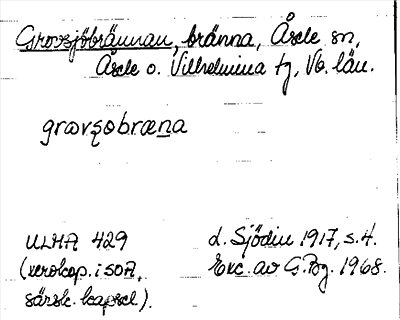 Grovsjöbrännan, bränna, Åsele sn,
Åsele o. Vilhelmina tg, Vb. län.
gravsobræna
ULMA 429
(xerokop. i SOA,
särsk. kapsel.).
L. Sjödin 1917, s. 4.
Exc. av G. Bg. 1968.